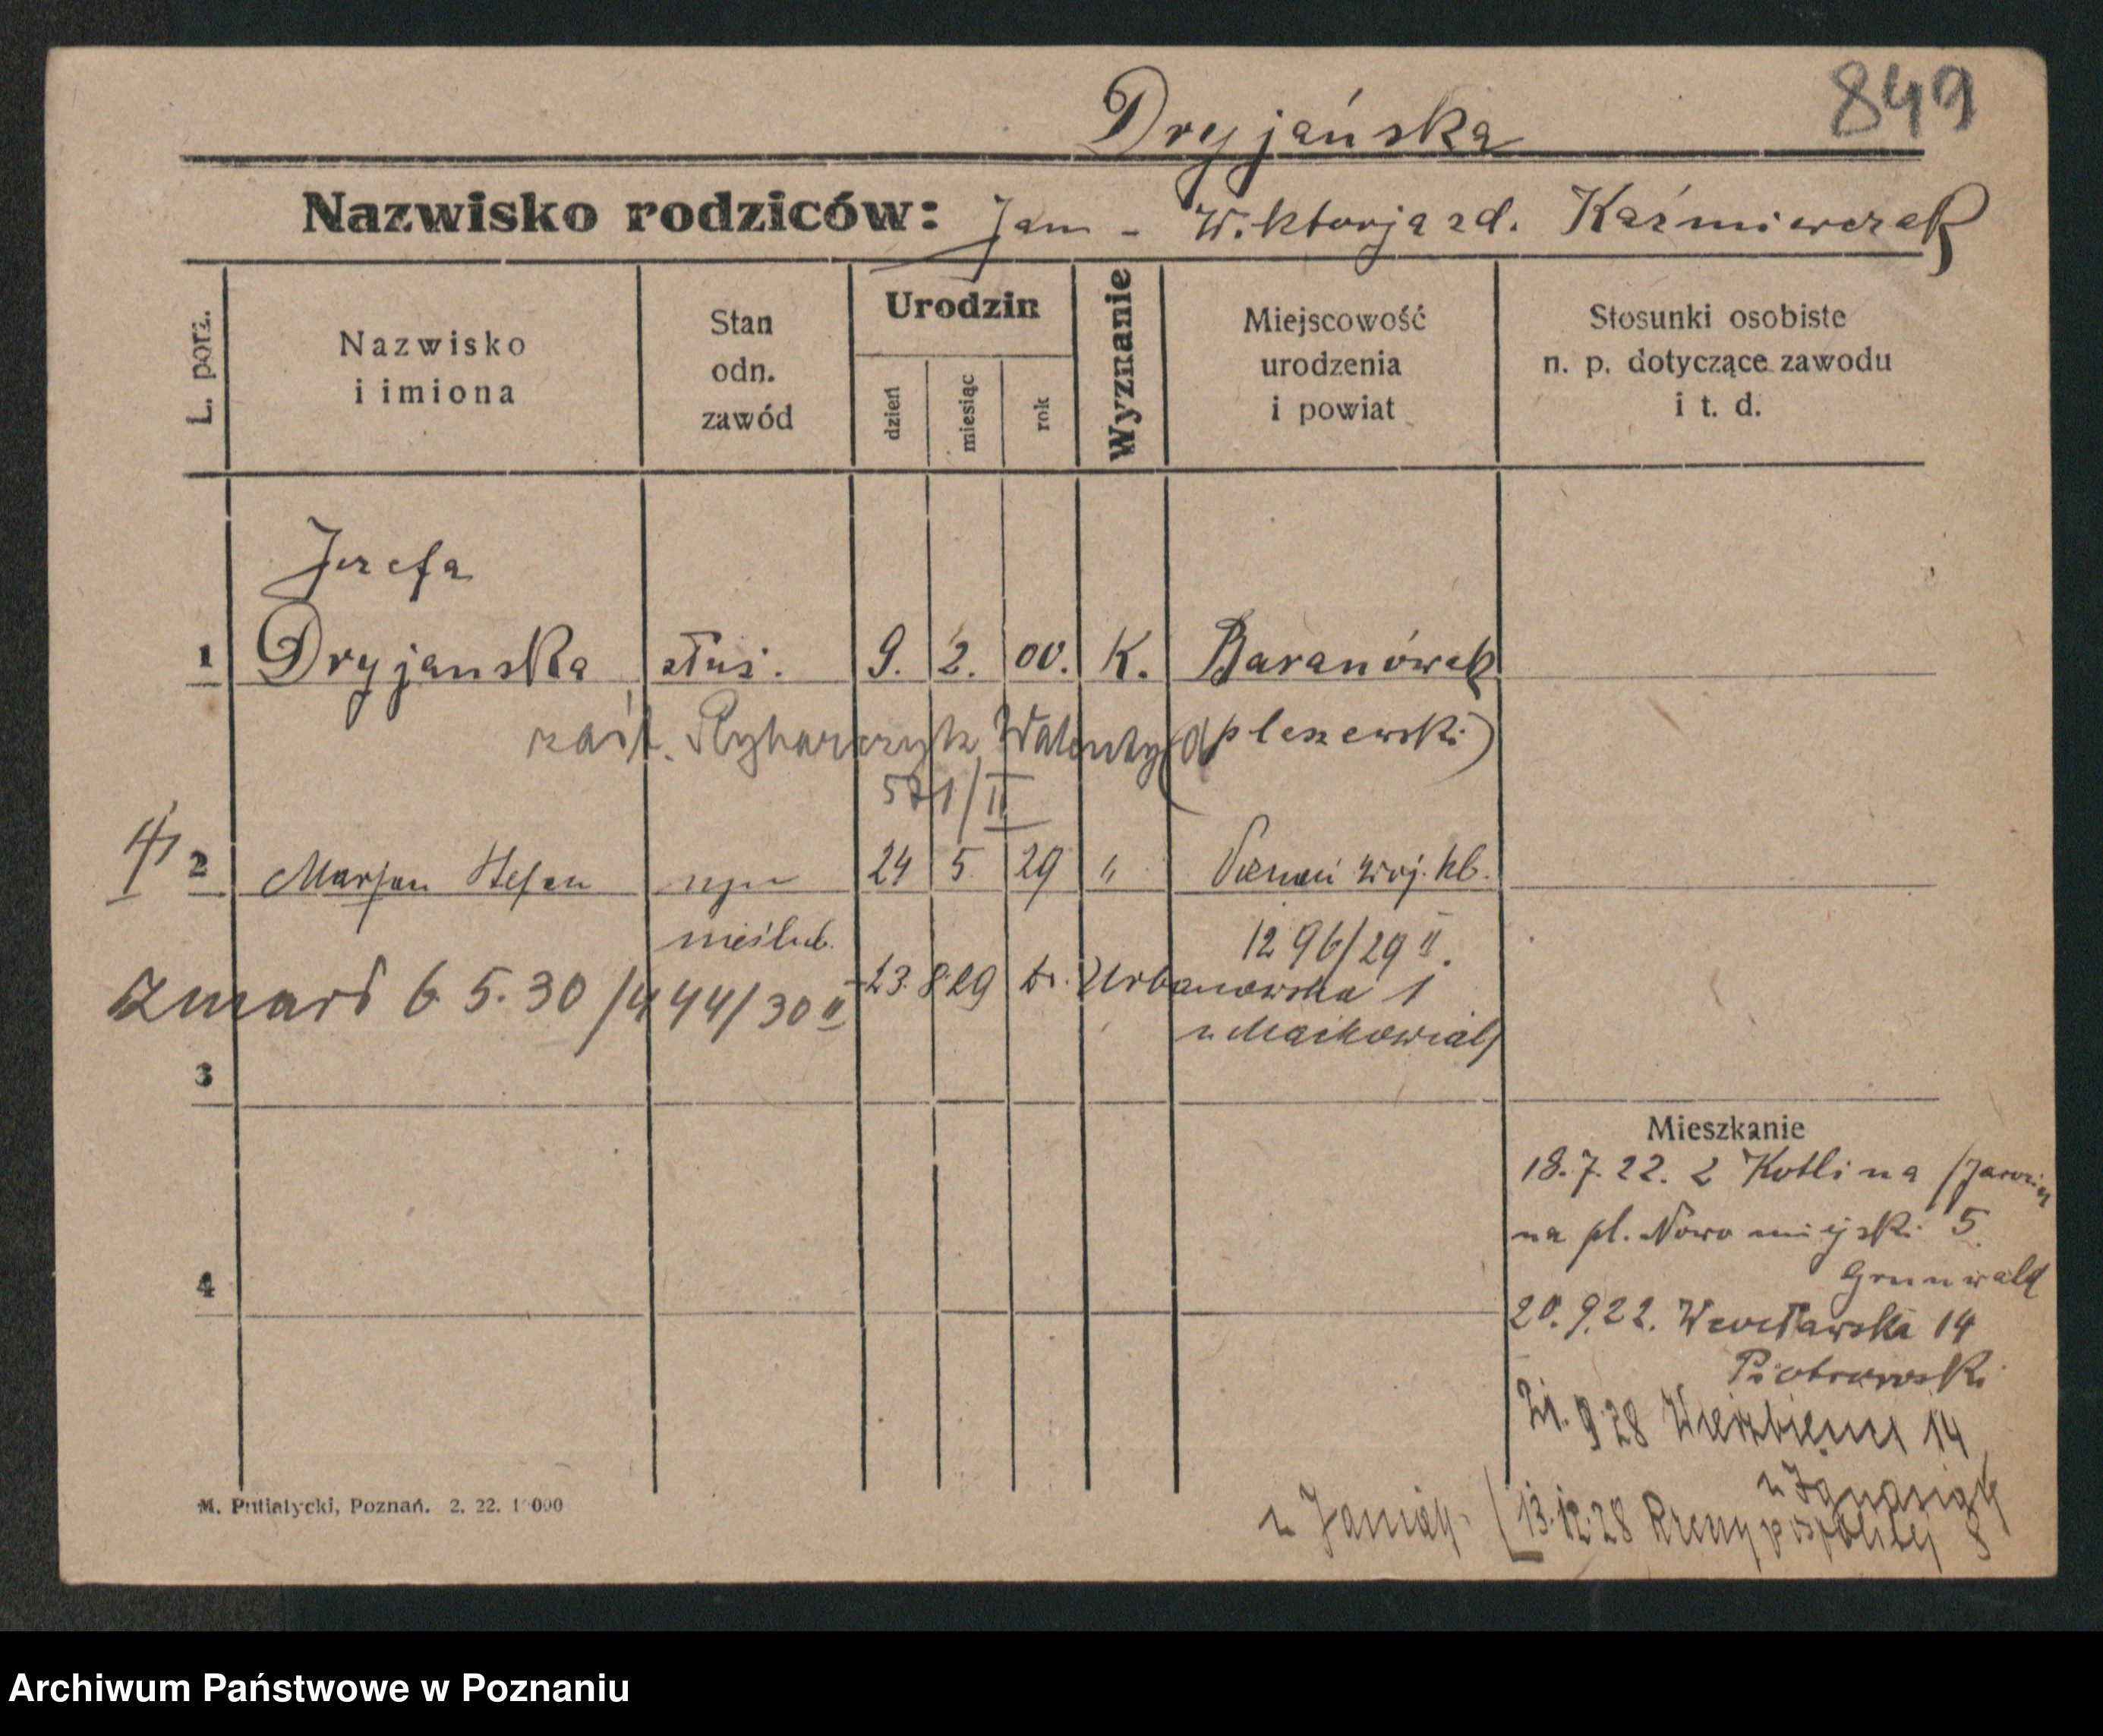 849
Dryjańska
Nazwisko rodziców: Jan - Wiktorja zd. Kaźmierczak
L. porz.
Nazwisko i imiona
Stan odn. zawód
Urodzin
dzień
miesiąc
rok
Wyznanie
Miejscowość urodzenia i powiat
Stosunki osobiste n. p. dotyczące zawodu i t. d.
Józefa
1 Dryjanska służ. 9. 2. 00. K. Baranówek
zaśl. Rybarczyk Walenty (pleszewski)
571/II
2 Marjan Stefan syn 24 5 29 " Poznań woj. kb.
nieślub. 1296/29 II.
zmarł 6 5. 30 /444/30 II
23. 8 29 Dr. Urbanowska 1
u Maćkowiak
3
Mieszkanie
18. 7. 22. z Kotlina /Jarocin
na pl. Nowomiejski 5.
4
Grunwald
20. 9. 22. Wrocławska 14
Piotrowski
21. 9 28 Wierzbięcice 14
u Ignasiak
13. 12. 28 Rzeczypospolitej 8
u
M. Putiatycki, Poznań. 2. 22. 10000
Archiwum Państwowe w Poznaniu